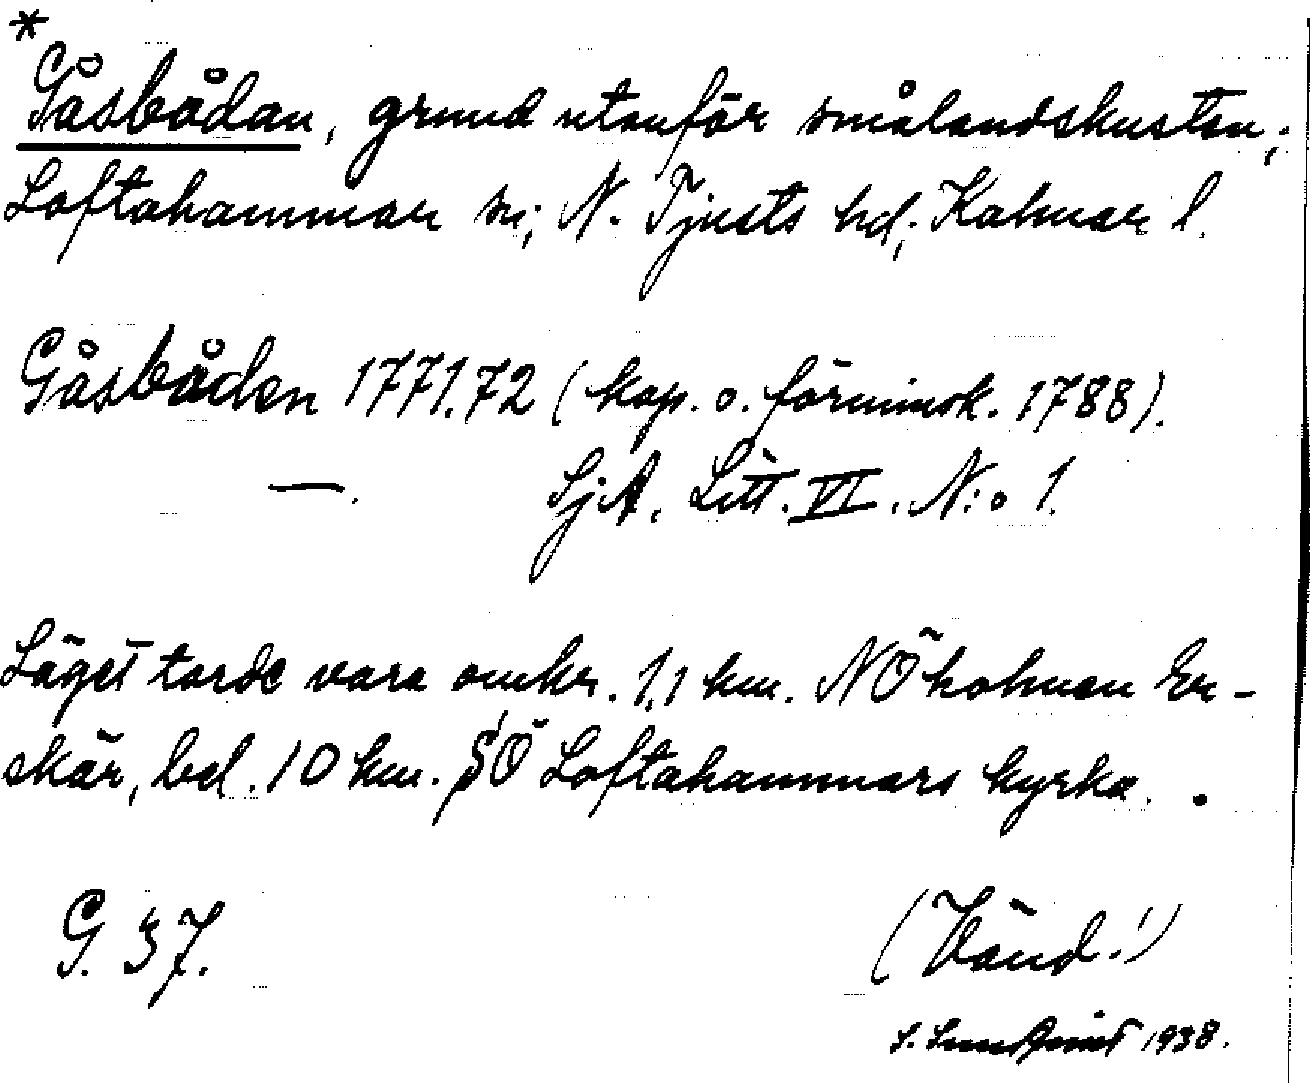 *
Gåsbådan, grund utanför smålandskusten,
Loftahammar sn; N. Tjusts hd; Kalmar l.
Gåsbåden 1771.72 (kop. o. förminsk. 1788).
—. SjA. Litt. VI. N:o 1.
Läget torde vara omkr. 1,1 km. NÖ holmen En-
skär, bel. 10 km. SÖ Loftahammars kyrka.
G. 37. (Vänd!)
S. 1938.